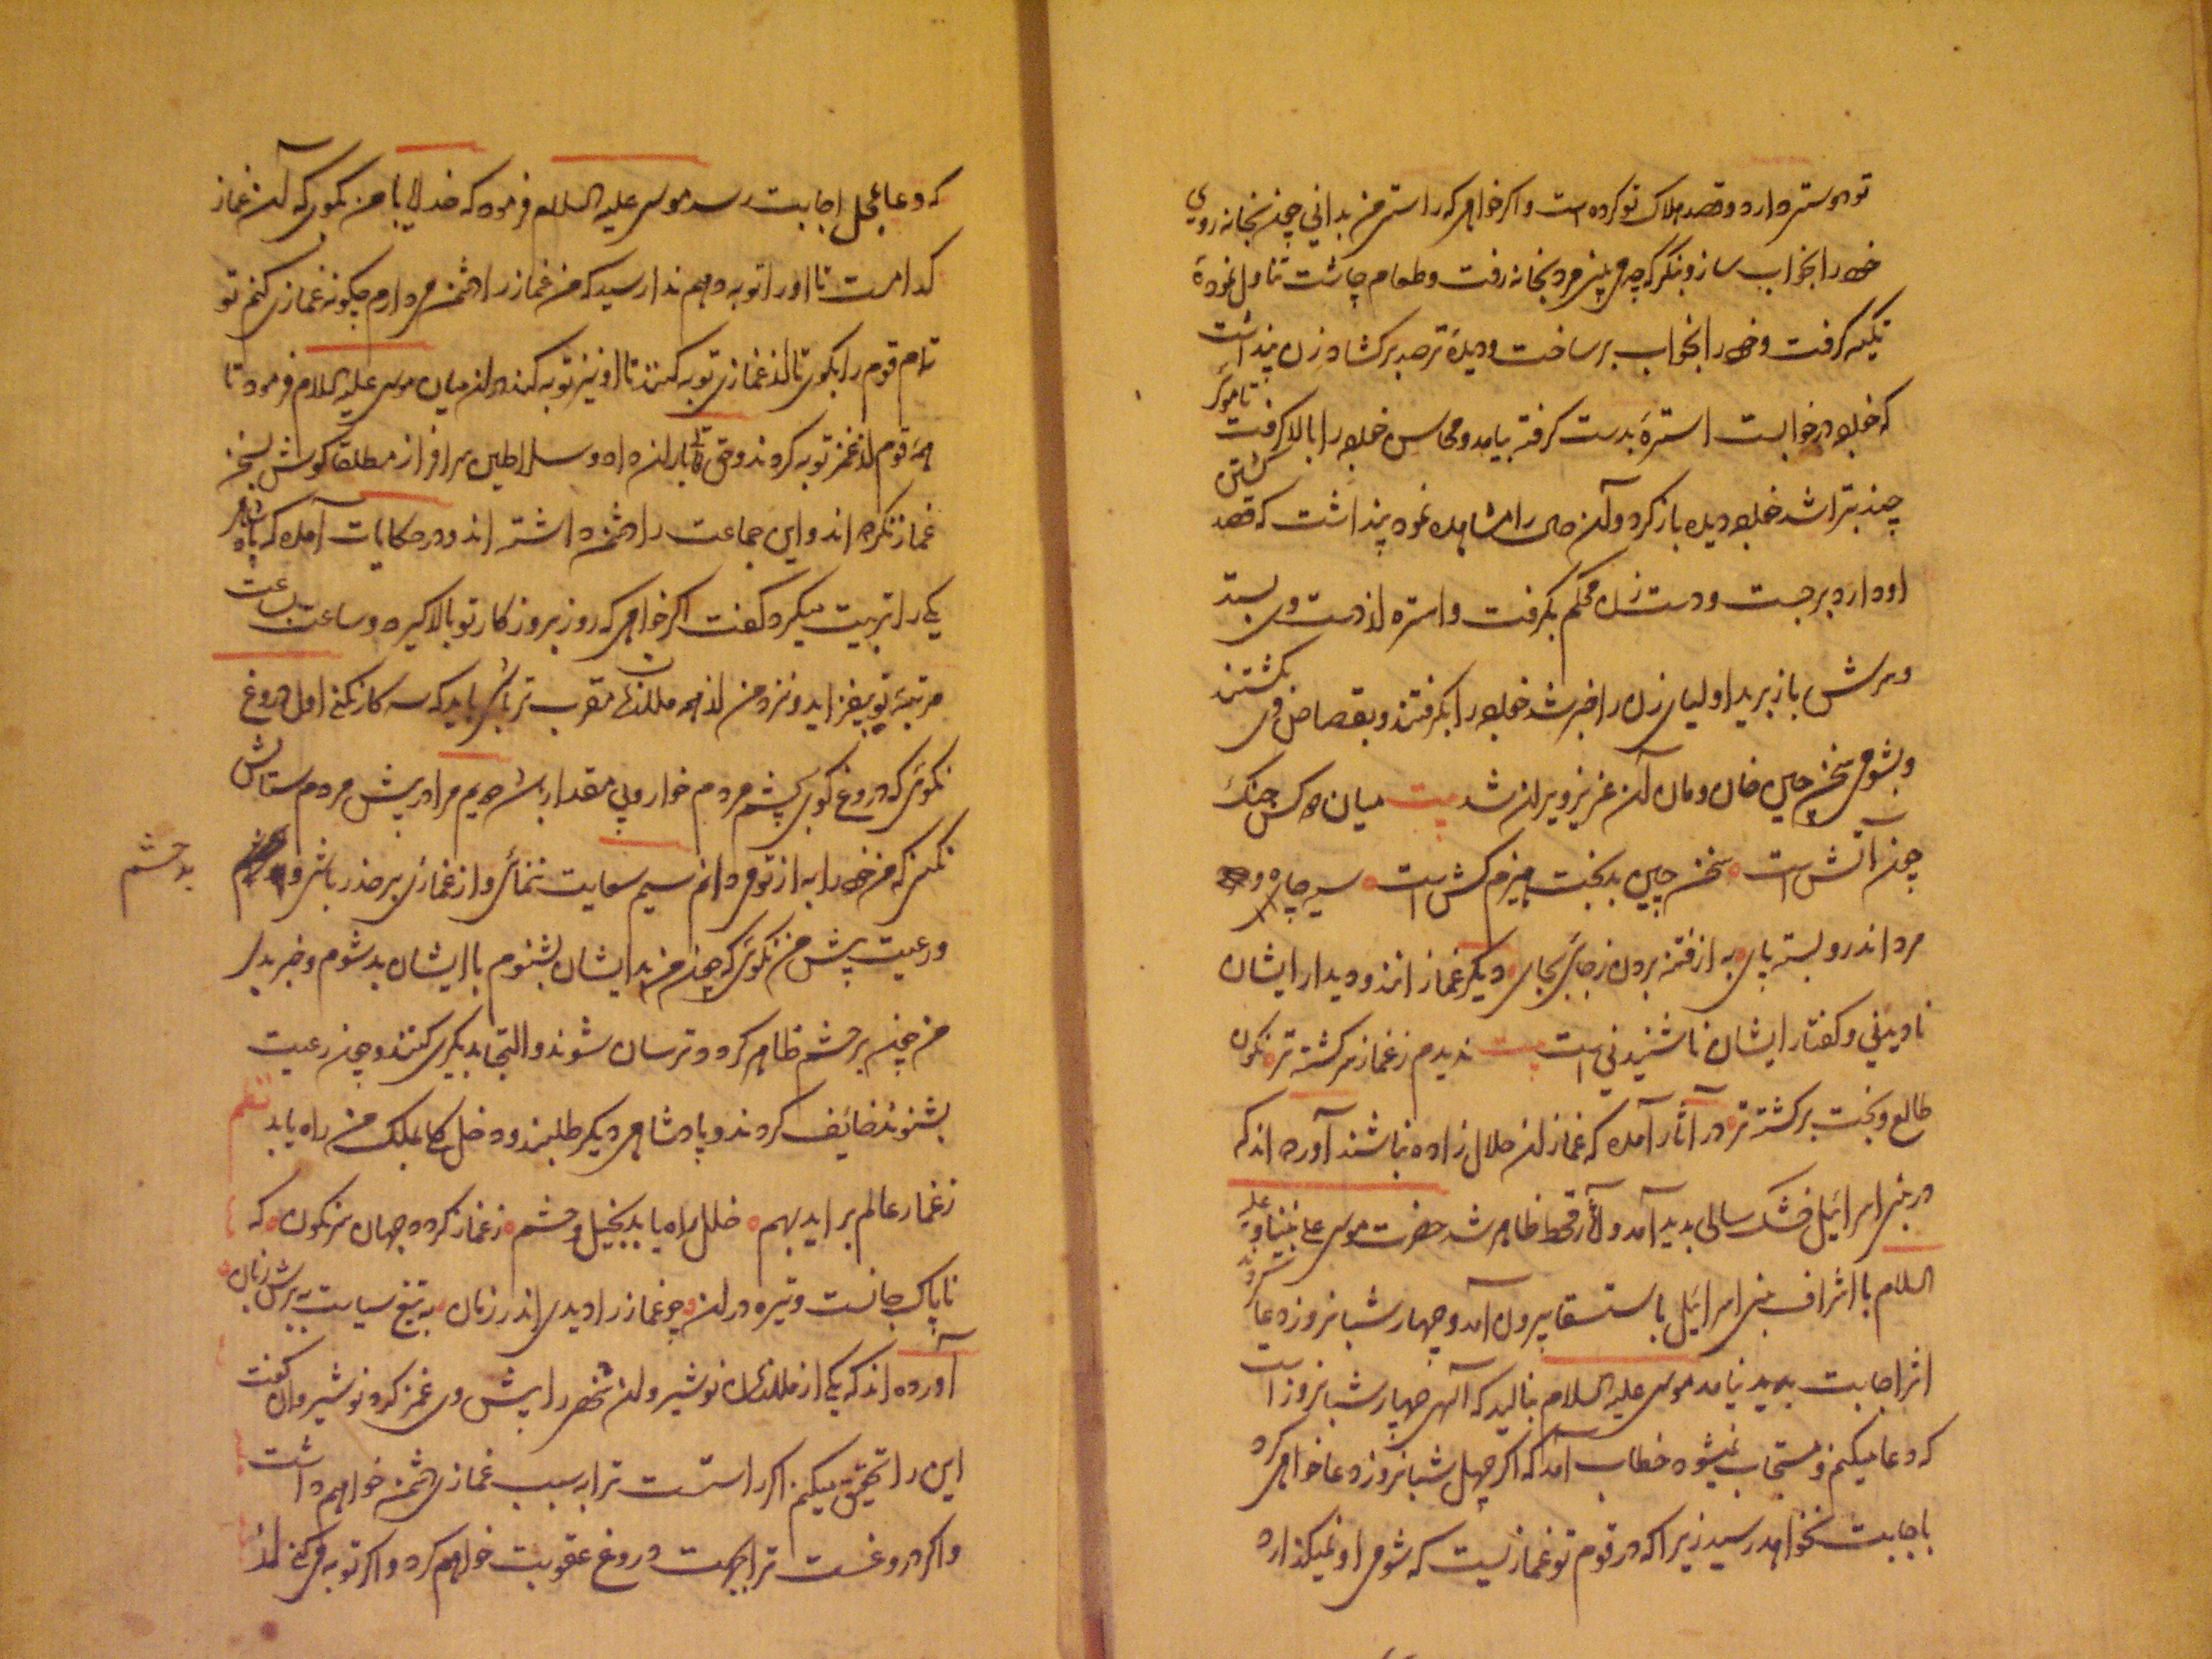 تو دوست میدارد و قصد هلاک تو کرده است و اکر خواهی که راستی من بدانی چون بخانه روی
خود را بخواب ساز و بنکر که چه می بینی مرد بخانه رفت و طعام چاشت تناول نموده
تکیه کرفت و خود را بخواب بر ساخت و دیده ترصد برکشاد زن پنداشت
که خواجه در خوابست استره بدست کرفته بیامد و محاسن خواجه را بالا کرفت تا موی
چند بتراشد خواجه دیده باز کرد و آن حال را مشاهده نمود پنداشت که قصد کشتن
او دارد برجست و دست زن محکم بکرفت و استره از دست وی بستد
و سرش باز برید اولیای زن را خبر شد خواجه را بکرفتند و بقصاص وی بکشتند
و بشومی سخن چین خان و مان آن عزیز ویران شد بیت میان دو کس جنک
چون آتش است سخن چین بدبخت هیزم کش است سیه چاه و
مرد اندرو بسته پای به از فتنه بردن ز جای بجای دیکر غماز انند و دیدار ایشان
نادیدنی و کفتار ایشان ناشنیدنی است بیت ندیدم ز غماز سرکشته تر نکون
طالع و بخت برکشته تر در آثار آمده که غمازان حلال زاده نباشند آورده اند که
در بنی اسرائیل خشک سالی بدید آمد و آثار قحط ظاهر شد حضرت موسی علی نبینا و علیه
السلام با اشراف بنی اسرائیل باستسقا بیرون آمد و چهار شبانروز دعا کردند
اثر اجابت بدید نیامد موسی علیه السلام بنالید که الهی چهار شبانروز است
که دعا میکنم و مستجاب نمیشود خطاب آمد که اکر چهل شبانروز دعا خواهی کرد
باجابت نخواهد رسید زیرا که در قوم تو غمازیست که شومی او نمیکذارد
که دعا بمحل اجابت رسد موسی علیه السلام فرمود که خدایا با من بکوی که آن غماز
کدامست تا او را توبه دهم ندا رسید که من غماز را دشمن میدارم چکونه غمازی کنم تو
تمام قوم را بکوی تا از غمازی توبه کنند تا او نیز توبه کند در ان میان موسی علیه السلام فرمود تا
همه قوم از غمز توبه کردند و حق تعالی باران داد و سلاطین سرافراز مطلقا کوش بسخن
غماز نکرده اند و این جماعت را دشمن داشته اند و در حکایات آمده که پادشاهی
یکی را تربیت میکرد کفت اکر خواهی که روز بروز کار تو بالا کیرد و ساعت بساعت
مرتبه تو بیفزاید و نزد من از همه ملازمان مقرب تر باشی باید که سه کار نکنی اول دروغ
نکوئی که دروغ کوی بچشم مردم خوار و بی مقدار باشد دویم مرا در پیش مردم ستایش
نکنی که من خود را به از تو میدانم سیم سعایت ننمائی و از غمازی بر حذر باشی و
بد حشم
و رعیت پیش من نکوئی که چون من بد ایشان بشنوم با ایشان بد شوم و خبر بد
من چون بر حشم ظاهر کردد ترسان شوند و التجا بدیکری کنند و چون رعیت
بشنوند خائف کردند و پادشاهی دیکر طلبند و خلل کلی بملک من راه یابد نظم
ز غماز عالم برآید بهم خلل راه یابد بخیل و حشم ز غماز کردد جهان سرنکون که
ناپاک جانست و تیره درون چو غماز را دیدی اندر زمان به تیغ سیاست ببرش زبان
آورده اند که یکی از ملازمان نوشیروان شخصی را پیش وی غمز کرد نوشیروان کفت
این را تحقیق میکنم اکر راستست ترا به سبب غمازی دشمن خواهم داشت
و اکر دروغست ترا بجهت دروغ عقوبت خواهم کرد و اکر توبه می کنی از